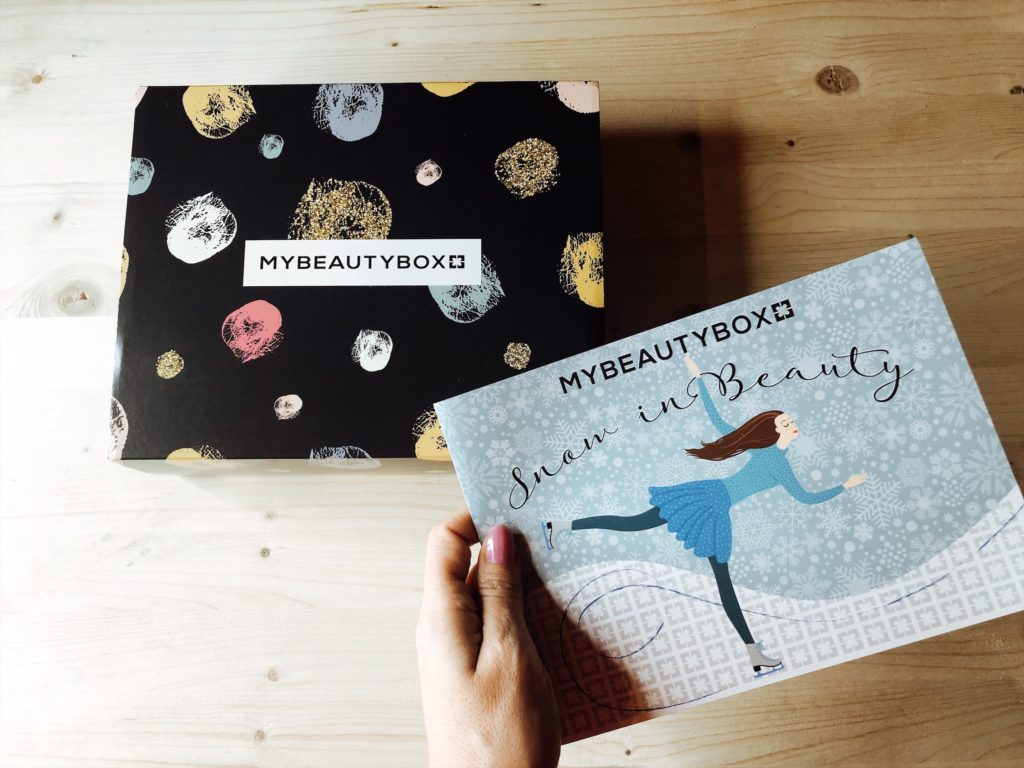 MYBEAUTYBOX
MYBEAUTYBOX
Snow in Beauty